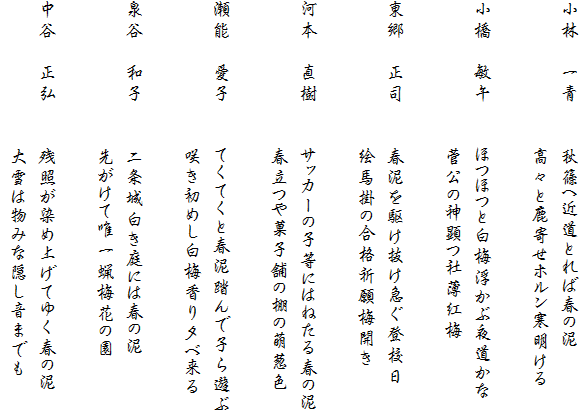 小林 一青
秋篠へ近道とれば春の泥
高々と鹿寄せホルン寒明ける
小橋 敏午
ほつほつと白梅浮かぶ夜道かな
菅公の神顕つ社薄紅梅
東郷 正司
春泥を駆け抜け急ぐ登校日
絵馬掛の合格祈願梅開き
河本 直樹
サッカーの子等にはねたる春の泥
春立つや菓子舗の棚の萌葱色
瀬能 愛子
てくてくと春泥踏んで子ら遊ぶ
咲き初めし白梅香り夕べ来る
泉谷 和子
二条城白き庭には春の泥
先がけて唯一蝋梅花の園
中谷 正弘
残照が染め上げてゆく春の泥
大雪は物みな隠し音までも